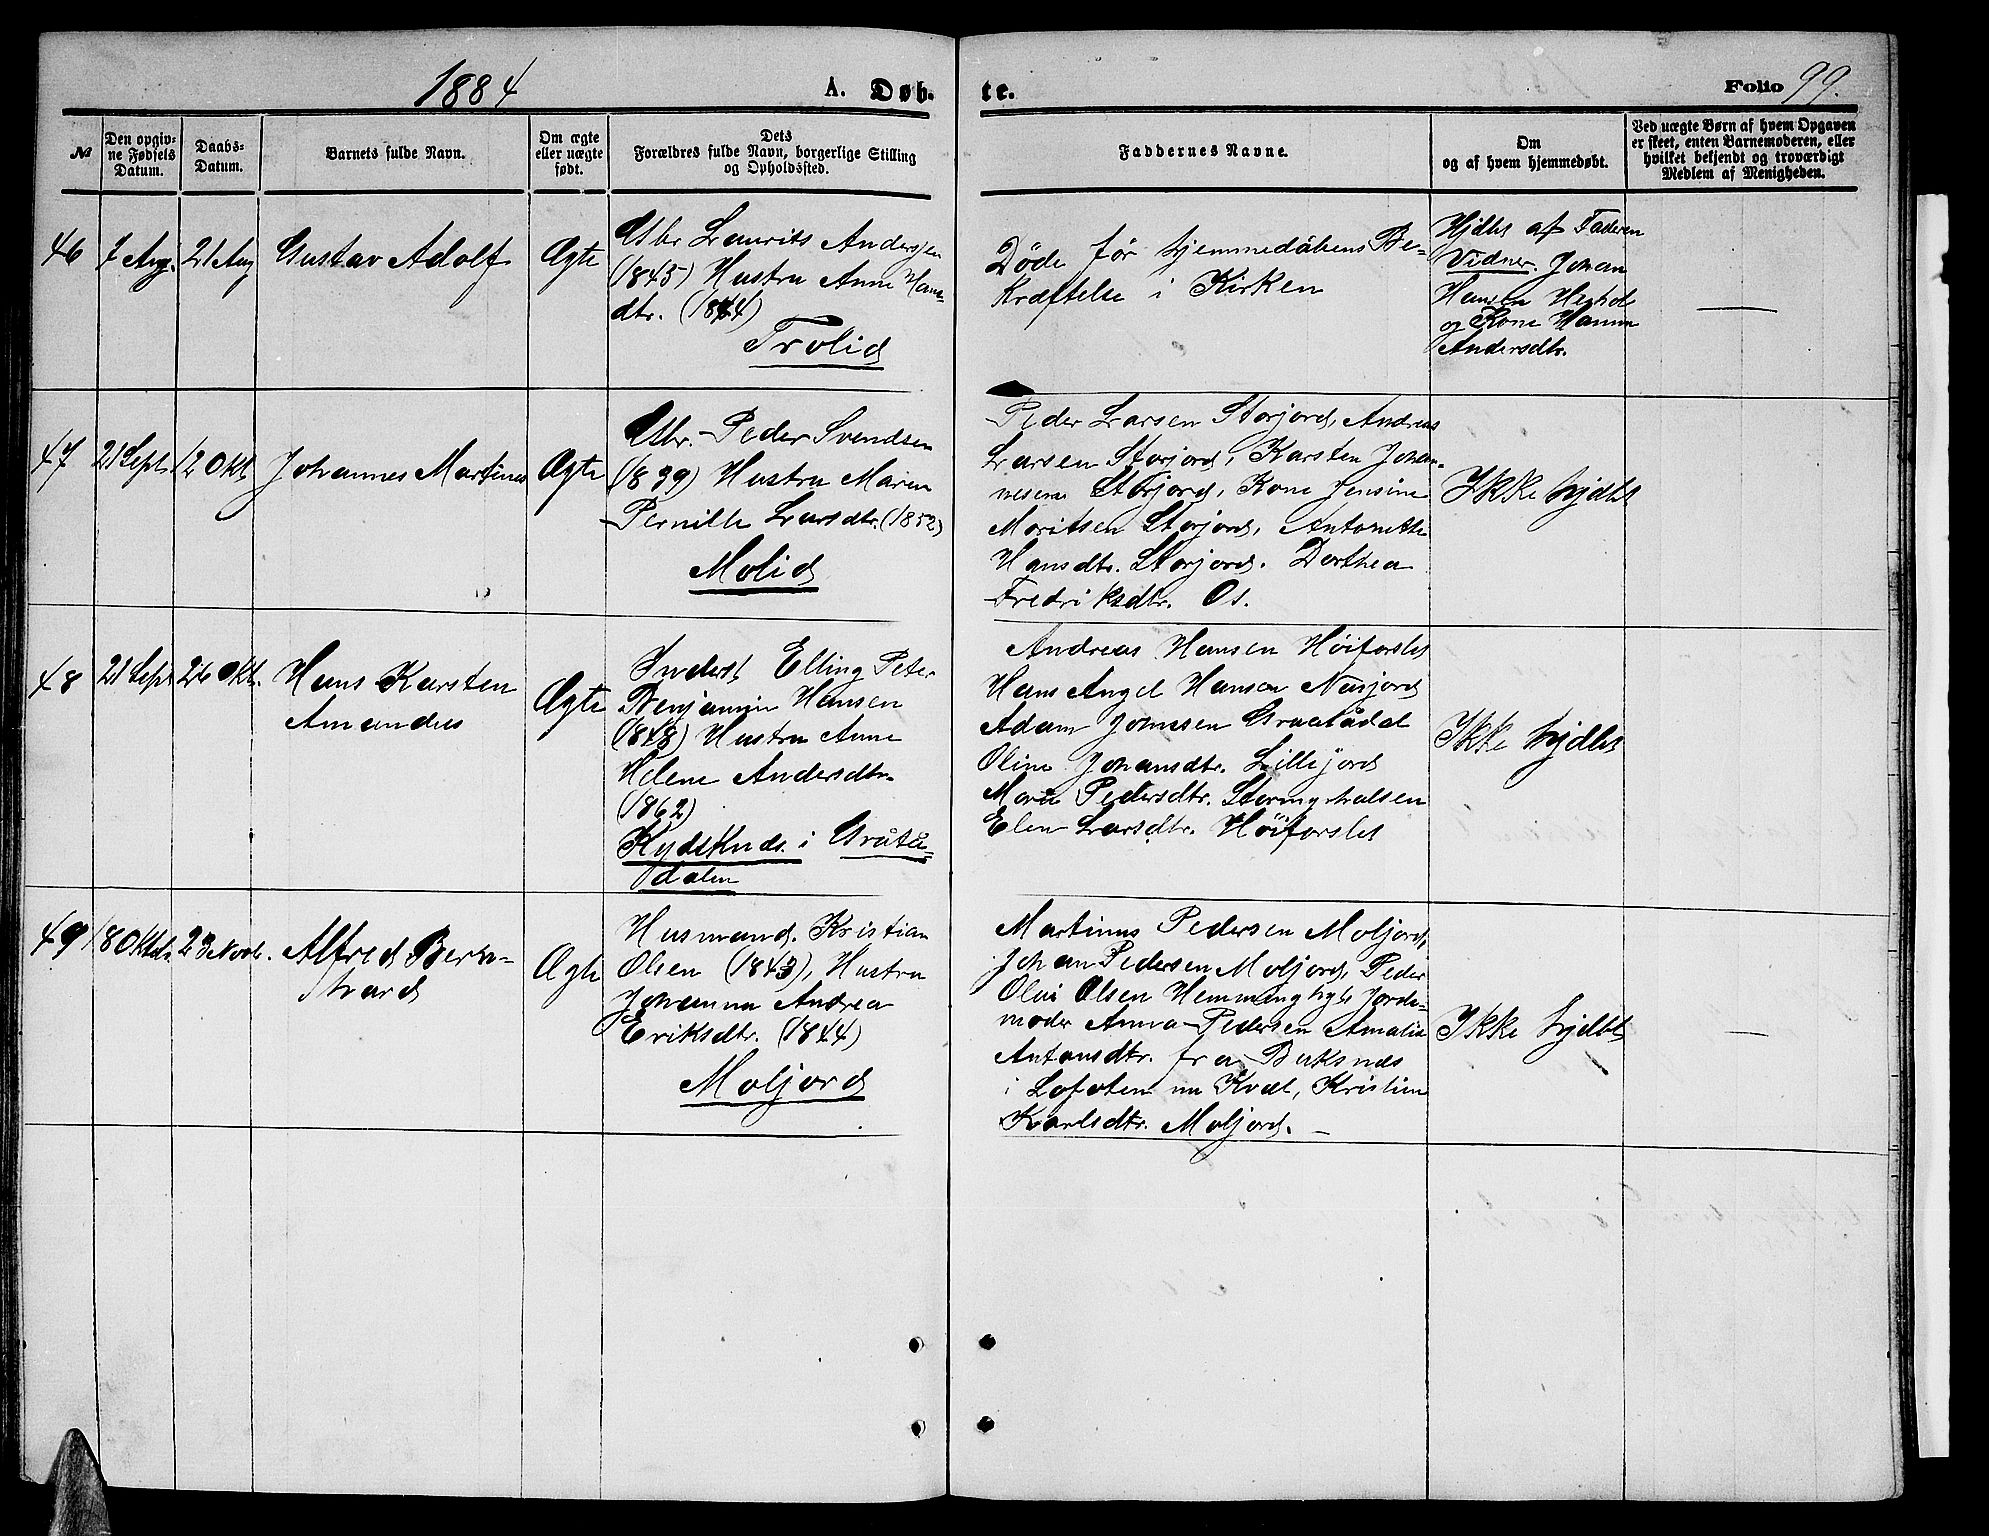 1884
A. Døb-
te.
Folio 99.
№
Den opgiv-
ne Fødsels
Datum.
Daabs-
Datum.
Barnets fulde Navn.
Om ægte
eller uægte
født.
Dets
Forældres fulde Navn, borgerlige Stilling
og Opholdssted.
Faddernes Navne.
Om
og af hvem hjemmedøbt.
Ved uægte Børn af hvem Opgaven
er skeet, enten Barnemoderen, eller
hvilket bekjendt og troværdigt
Medlem af Menigheden.
46
7 Aug.
21 Aug
Gustav Adolf
Ægte
Gbr Laurits Andersen
(1845) Hustru Anne Hans
dtr. (1844)
Trolid
Døde før hjemmedåbens Be-
kræftelse i Kirken
Hjdbt af Faderen
Vidner. Johan
Hansen
og Kone Hanna
Andersdtr.
—
47
21 Sept.
12 Okt
Johannes Martinus
Ægte
Gbr. Peder Svendsen
(1839) Hustru Maren
Pernille Larsdtr. (1852)
Molid
Peder Larsen Storjord, Andreas
Larsen Storjord, Karsten Johan-
nesen Storjord, Kone Jensine
Moritsen Storjord, Antonette
Hansdtr. Storjord. Dorthea
Fredriksdtr. Os.
Ikke hjdbt
48
21 Sept
26 Okt.
Hans Karsten
Amandus
Ægte
Inderst Elling Peter
Benjamin Hansen
(1848) Hustru Anne
Helene Andersdtr.
(1862)
i Gråtå-
dalen
Andreas Hansen Høiforslet
Hans Angel Hansen Nesjord
Adam Johnsen Graatådal
Oline Johansdtr. Lillejord
Maria Pedersdtr. Storeng
Elen Larsdtr. Høiforslet
Ikke hjdbt
49
18 Oktb.
23 Novb.
Alfred Bern-
hard
Ægte
Husmand. Kristian
Olsen (1843), Hustru
Johanna Andrea
Eriksdtr. (1844)
Moljord
Martinus Pedersen Moljord,
Johan Pedersen Moljord, Peder
Olai Olsen Jorde-
moder Anna Pedersen Amalie
Antonsdtr. fra Buksnes
i Lofoten nu Kvæl, Kristine
Karlsdtr. Moljord. —
Ikke hjdbt
—